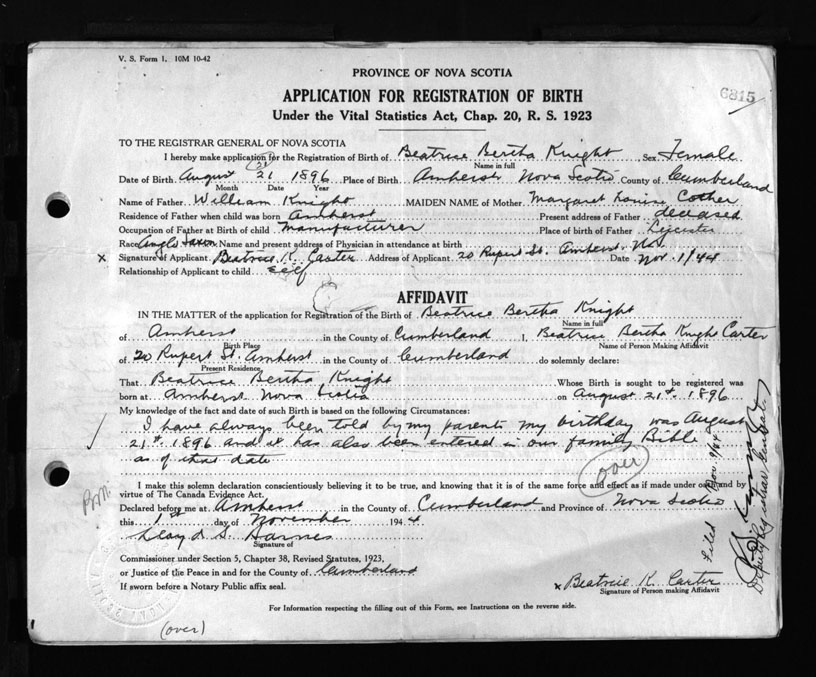 V. S. Form 1. 10M 10-42
PROVINCE OF NOVA SCOTIA
6815
APPLICATION FOR REGISTRATION OF BIRTH
Under the Vital Statistics Act, Chap. 20, R. S. 1923
TO THE REGISTRAR GENERAL OF NOVA SCOTIA
I hereby make application for the Registration of Birth of Beatrice Bertha Knight Sex Female
Name in full
21
Date of Birth August 21 1896 Place of Birth Amherst Nova Scotia County of Cumberland
Month Date Year
Name of Father William Knight MAIDEN NAME of Mother Margaret Louise Cother
Residence of Father when child was born Amherst Present address of Father deceased
Occupation of Father at Birth of child Manufacturer Place of birth of Father Leicester
Race Anglo Saxon Name and present address of Physician in attendance at birth
x Signature of Applicant Beatrice K. Carter Address of Applicant 20 Rupert St. Amherst. N.S. Date Nov. 1/44
Relationship of Applicant to child self
AFFIDAVIT
IN THE MATTER of the application for Registration of the Birth of Beatrice Bertha Knight
Name in full
of Amherst in the County of Cumberland I, Beatrice Bertha Knight Carter
Birth Place Name of Person Making Affidavit
of 20 Rupert St. Amherst in the County of Cumberland do solemnly declare:
Present Residence
That Beatrice Bertha Knight Whose Birth is sought to be registered was
born at Amherst Nova Scotia on August 21st 1896
My knowledge of the fact and date of such Birth is based on the following Circumstances:
I have always been told by my parents my birthday was August
21st. 1896 and it has also been entered in our family Bible
as of that date
(over)
I make this solemn declaration conscientiously believing it to be true, and knowing that it is of the same force and effect as if made under oath and by
virtue of The Canada Evidence Act.
Declared before me at Amherst in the County of Cumberland and Province of Nova Scotia
this 1st day of November 1944
Lloyd S. Barnes
Signature of
Commissioner under Section 5, Chapter 38, Revised Statutes, 1923,
or Justice of the Peace in and for the County of Cumberland
If sworn before a Notary Public affix seal.
x Beatrice K. Carter
Signature of Person making Affidavit
For Information respecting the filling out of this Form, see Instructions on the reverse side.
(over)
Filed Nov. 9/44
Deputy Registrar General